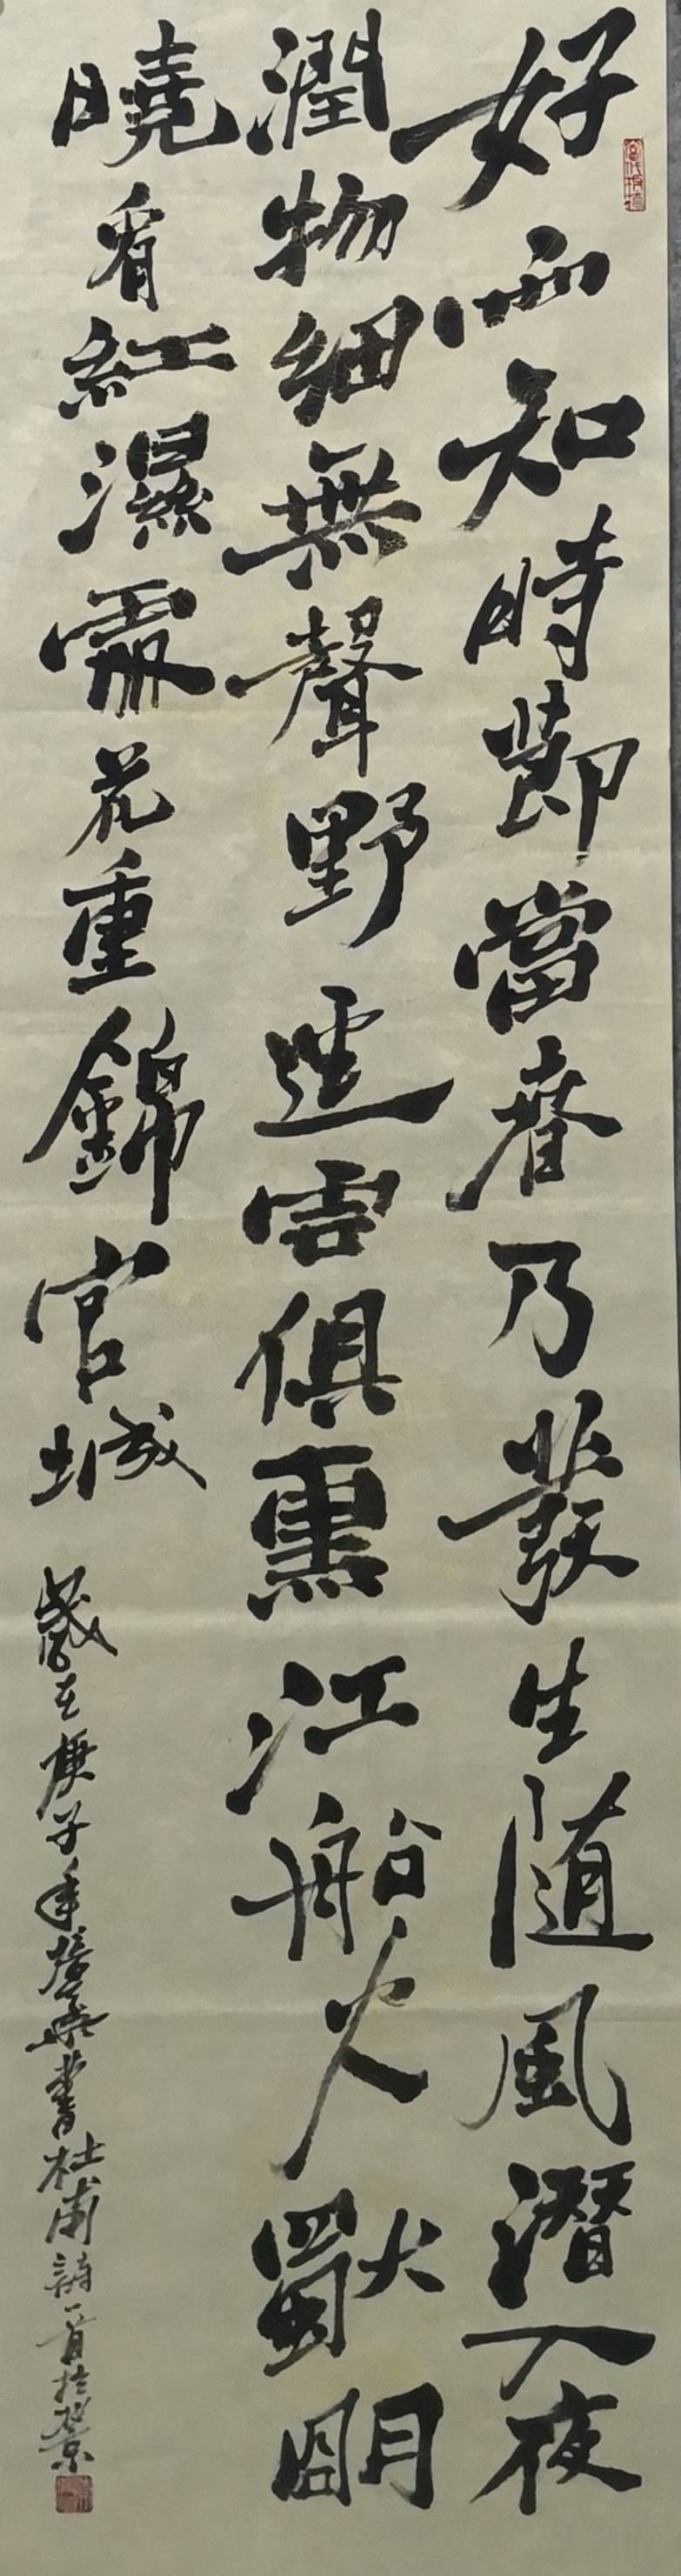 好雨知時節當春乃發生随風潛入夜
潤物細無聲野逕雲俱黑江船火獨明
曉看紅濕處花重錦官城
歲在庚子年培業書杜甫詩一首於燕京